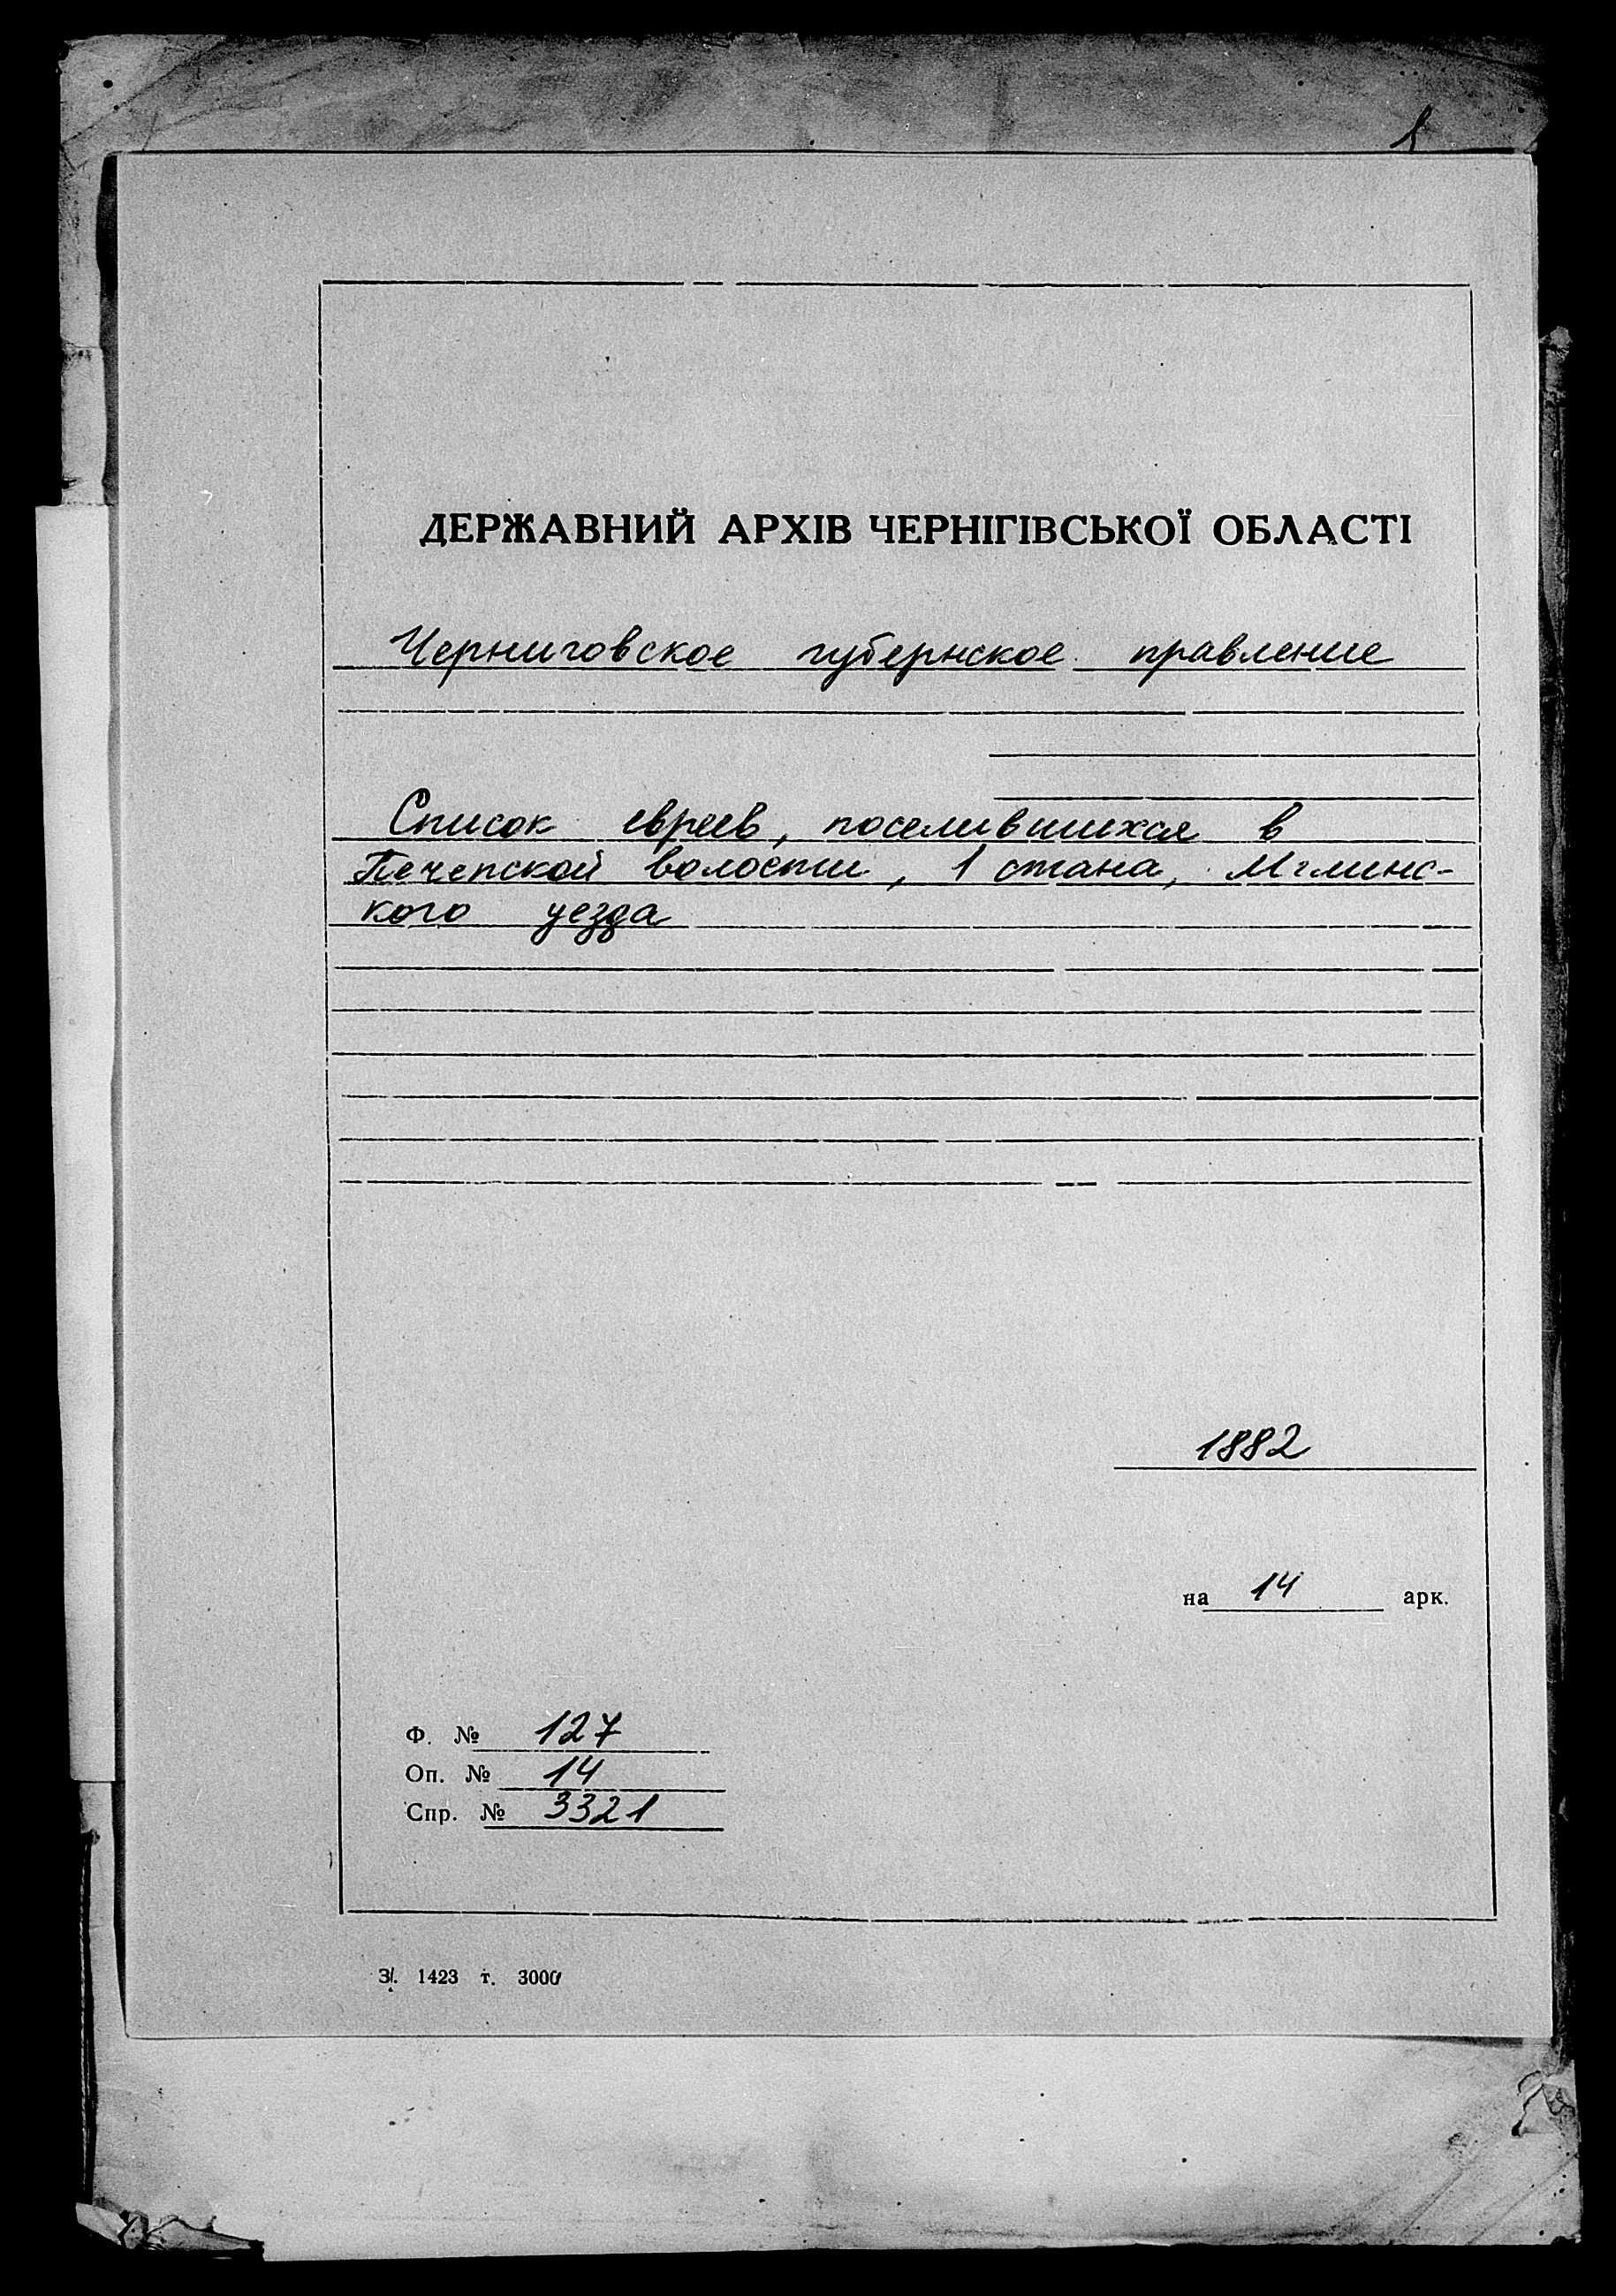 ДЕРЖАВНИЙ АРХІВ ЧЕРНІГІВСЬКОЇ ОБЛАСТІ
Черниговское губернское правление
Список евреев, поселившихся в
Печепской волости, 1 стана, Мглинс-
кого уезда
1882
на 14 арк.
Ф. № 127
Оп. № 14
Спр. № 3321
З. 1423 т. 3000